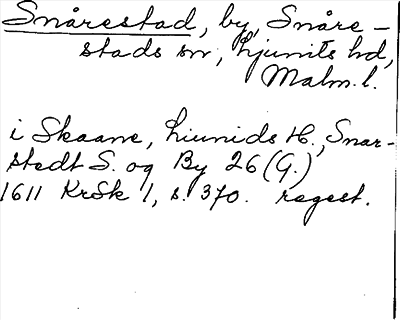 Snårestad, by, Snåre-
stads sn, Ljunits hd,
Malm. l.
i Skaane, Liunids H., Snar-
stedt S. og By 26 (G.)
1611 KrSk 1, s. 370. regest.